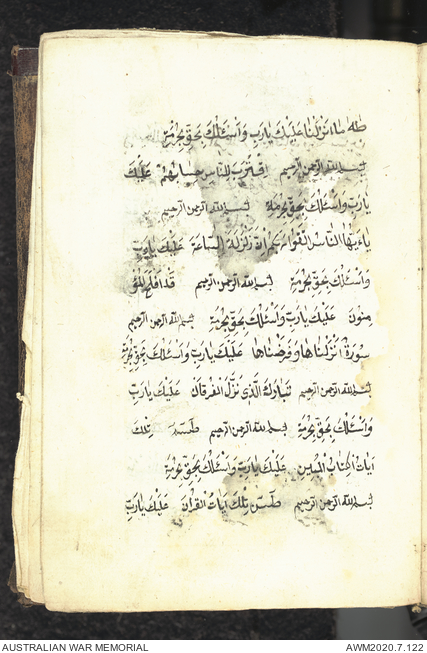 طه ما انزلنا عليك يا رب واسئلك بحق بحرمة
بسم الله الرحمن الرحيم اقترب للناس حسابهم عليك
يا رب واسئلك بحق بحرمة بسم الله الرحمن الرحيم
يا ايها الناس اتقوا ربكم ان زلزلة الساعة عليك يا رب
واسئلك بحق بحرمة بسم الله الرحمن الرحيم قد افلح المؤ
منون عليك يا رب واسئلك بحق بحرمة بسم الله الرحمن الرحيم
سورة انزلناها وفرضناها عليك يا رب واسئلك بحق بحرمة
بسم الله الرحمن الرحيم تبارك الذي نزل الفرقان عليك يا رب
واسئلك بحق بحرمة بسم الله الرحمن الرحيم طسم تلك
ايات الكتاب المبين عليك يا رب واسئلك بحق بحرمة
بسم الله الرحمن الرحيم طس تلك ايات القران عليك يا رب
AUSTRALIAN WAR MEMORIAL
AWM2020.7.122